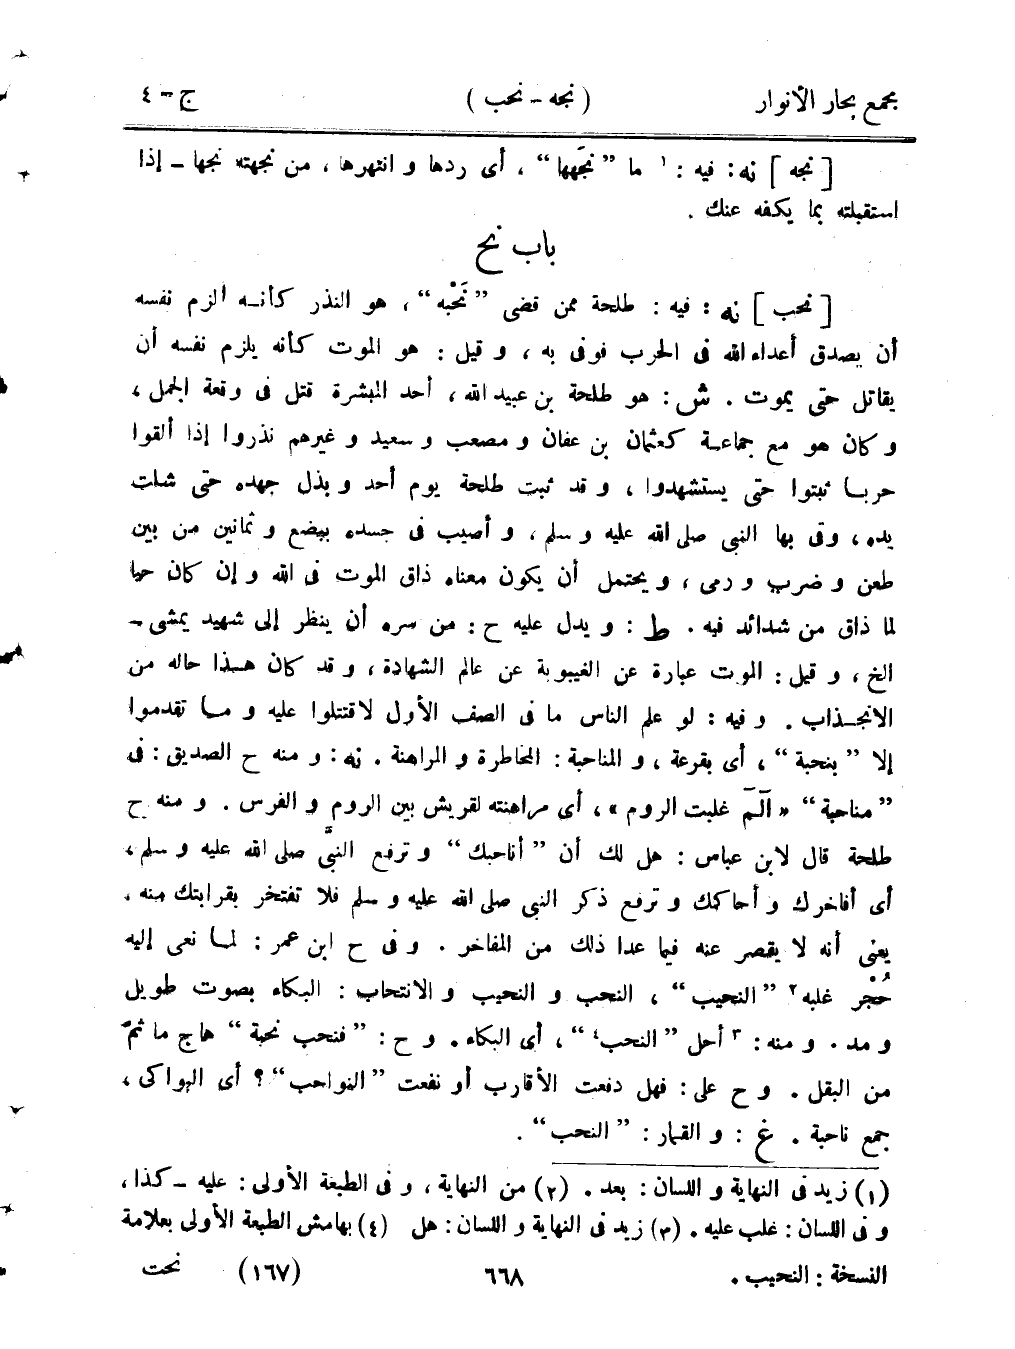 مجمع بحار الأنوار ( نجه - نحب ) ج - ٤
[ نجه ] نه : فيه : ١ ما ” نجَهها “ ، أى ردها و انتهرها ، من نجهته نجها - إذا
استقبلته بما يكفه عنك .
باب نح
[ نحب ] نه : فيه : طلحة ممن قضى ” نَحْبه “ ، هو النذر كأنه ألزم نفسه
أن يصدق أعداء الله فى الحرب فوفى به ، و قيل : هو الموت كأنه يلزم نفسه أن
يقاتل حتى يموت . ش : هو طلحة بن عبيد الله ، أحد المبشرة قتل فى وقعة الجمل ،
و كان هو مع جماعة كعثمان بن عفان و مصعب و سعيد و غيرهم نذروا إذا ألقوا
حربا ثبتوا حتى يستشهدوا ، و قد ثبت طلحة يوم أحد و بذل جهده حتى شلت
يده ، وقى بها النبى صلى الله عليه و سلم ، و أصيب فى جسده ببضع و ثمانين من بين
طعن و ضرب و رمى ، و يحتمل أن يكون معناه ذاق الموت فى الله و إن كان حيا
لما ذاق من شدائد فيه . ط : و يدل عليه ح : من سره أن ينظر إلى شهيد يمشى -
الخ ، و قيل : الموت عبارة عن الغيبوبة عن عالم الشهادة ، و قد كان هذا حاله من
الانجذاب . و فيه : لو علم الناس ما فى الصف الأول لاقتتلوا عليه و ما تقدموا
إلا ” بنحبة “ ، أى بقرعة ، و المناحبة : المخاطرة و المراهنة . نه : و منه ح الصديق : فى
” مناحبة “ « آلٓمٓ غلبت الروم » ، أى مراهنته لقريش بين الروم و الفرس . و منه ح
طلحة قال لابن عباس : هل لك أن ” أناحبك “ و ترفع النبىَّ صلى الله عليه و سلم ،
أى أفاخرك و أحاكمك و ترفع ذكر النبى صلى الله عليه و سلم فلا تفتخر بقرابتك منه ،
يعنى أنه لا يقصر عنه فيما عدا ذلك من المفاخر . و فى ح ابن عمر : لما نعى إليه
حُجْر غلبه ٢ ” النحيب “ ، النحب و النحيب و الانتحاب : البكاء بصوت طويل
و مد . و منه : ٣ أحل ” النحب ٤ “ ، أى البكاء . و ح : ” فنحب نحبة “ هاج ما ثمّ
من البقل . و ح على : فهل دفعت الأقارب أو نفعت ” النواحب “ ؟ أى البواكى ،
جمع ناحبة . غ : و القمار : ” النحب “ .
(١) زيد فى النهاية و اللسان : بعد . (٢) من النهاية ، و فى الطبعة الأولى : عليه - كذا ،
و فى اللسان : غلب عليه . (٣) زيد فى النهاية و اللسان : هل (٤) بهامش الطبعة الأولى بعلامة
النسخة : النحيب . ٦٦٨ (١٦٧) نحت